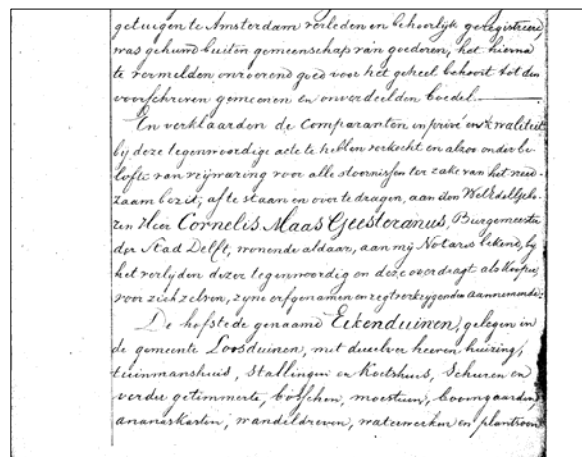 getuigen te Amsterdam verleden en behoorlijk geregistreerd,
was gehuwd buiten gemeenschap van goederen, het hierna
te vermelden onroerend goed voor het geheel behoort tot den
voorschreven gemeenen en onverdeelden boedel.
En verklaarden de Comparanten in privé en q.q. qualiteit
bij deze tegenwoordige acte te hebben verkocht en alzoo onder be-
lofte van vrijwaring voor alle stoornissen ter zake van het reed-
zaam bezit, af te staan en over te dragen, aan den WelEdelGebo-
ren Heer Cornelis Maas Geesteranus, Burgemeester
der Stad Delft, wonende aldaar, aan mij Notaris bekend, bij
het verlijden dezer tegenwoordig en deze overdragt als Kooper,
voor zich zelven, zijne erfgenamen en regtverkrijgenden aannemende:
De hofstede genaamd Eikenduinen, gelegen in
de gemeente Loosduinen, met deszelver heeren huizing,
tuinmanshuis, Stallingen en Koetshuis, Schuren en
verder getimmerte, bosschen, moestuin, boomgaarden,
ananaskasten, wandeldreven, waterwerken en plantsoen